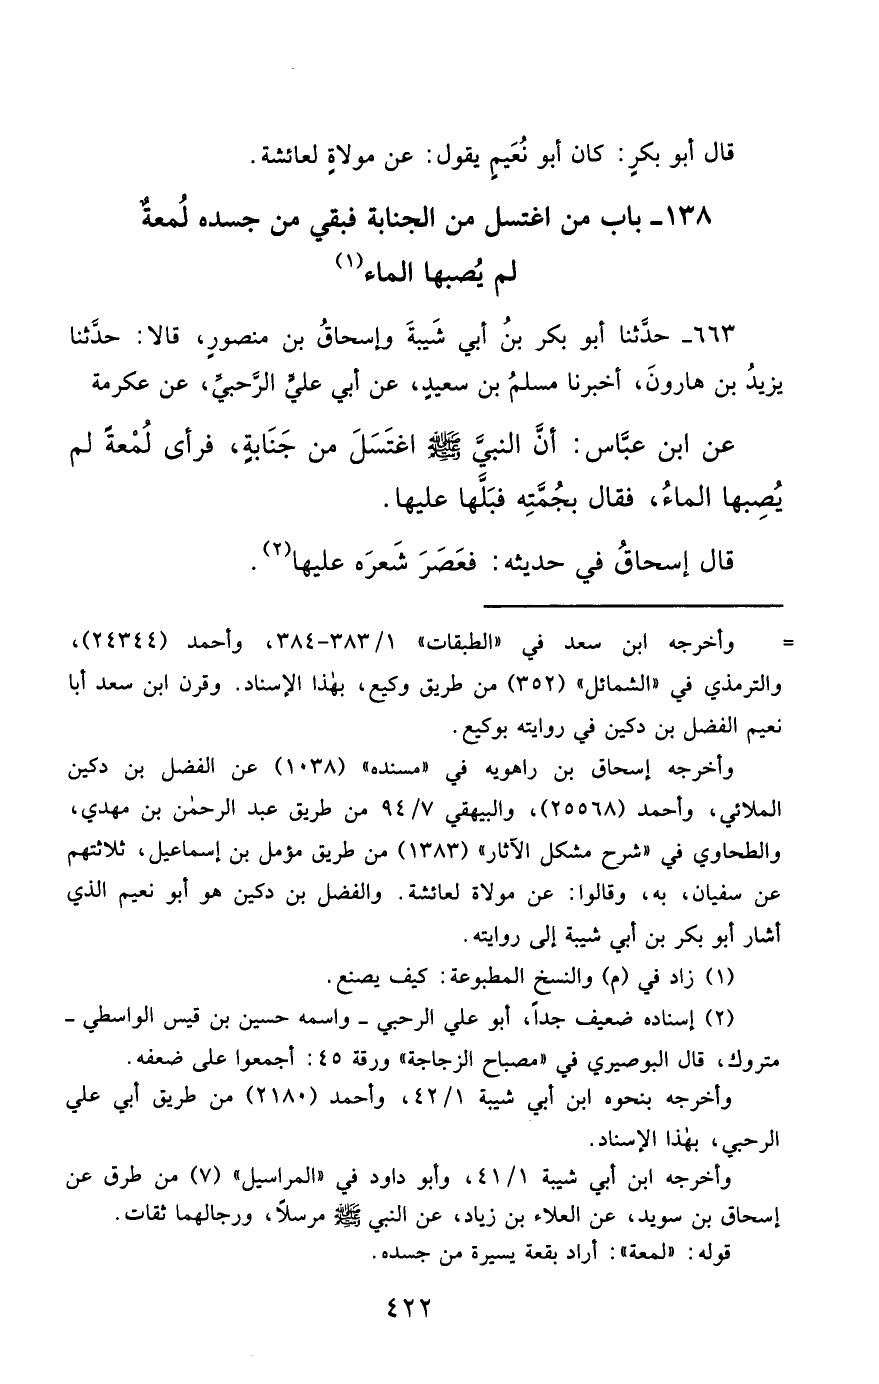 قال أبو بكرٍ: كان أبو نُعَيمٍ يقول: عن مولاةٍ لعائشة.
١٣٨ـ باب من اغتسل من الجنابة فبقي من جسده لُمعةٌ
لم يُصبها الماء(١)
٦٦٣ـ حدَّثنا أبو بكر بنُ أبي شَيبةَ وإسحاقُ بن منصورٍ، قالا: حدَّثنا
يزيدُ بن هارونَ، أخبرنا مسلمُ بن سعيدٍ، عن أبي عليٍّ الرَّحبيِّ، عن عكرمة
عن ابن عبَّاس: أنَّ النبيَّ ﷺ اغتَسَلَ من جَنَابةٍ، فرأى لُمْعةً لم
يُصِبها الماءُ، فقال بجُمَّتِه فبَلَّها عليها.
قال إسحاقُ في حديثه: فعَصَرَ شَعرَه عليها(٢).
= وأخرجه ابن سعد في «الطبقات» ١/ ٣٨٣-٣٨٤، وأحمد (٢٤٣٤٤)،
والترمذي في «الشمائل» (٣٥٢) من طريق وكيع، بهٰذا الإسناد. وقرن ابن سعد أبا
نعيم الفضل بن دكين في روايته بوكيع.
وأخرجه إسحاق بن راهويه في «مسنده» (١٠٣٨) عن الفضل بن دكين
الملائي، وأحمد (٢٥٥٦٨)، والبيهقي ٧/ ٩٤ من طريق عبد الرحمٰن بن مهدي،
والطحاوي في «شرح مشكل الآثار» (١٣٨٣) من طريق مؤمل بن إسماعيل، ثلاثتهم
عن سفيان، به، وقالوا: عن مولاة لعائشة. والفضل بن دكين هو أبو نعيم الذي
أشار أبو بكر بن أبي شيبة إلى روايته.
(١) زاد في (م) والنسخ المطبوعة: كيف يصنع.
(٢) إسناده ضعيف جداً، أبو علي الرحبي ـ واسمه حسين بن قيس الواسطي ـ
متروك، قال البوصيري في «مصباح الزجاجة» ورقة ٤٥: أجمعوا على ضعفه.
وأخرجه بنحوه ابن أبي شيبة ١/ ٤٢، وأحمد (٢١٨٠) من طريق أبي علي
الرحبي، بهٰذا الإسناد.
وأخرجه ابن أبي شيبة ١/ ٤١، وأبو داود في «المراسيل» (٧) من طرق عن
إسحاق بن سويد، عن العلاء بن زياد، عن النبي ﷺ مرسلاً، ورجالهما ثقات.
قوله: «لمعة»: أراد بقعة يسيرة من جسده.
٤٢٢